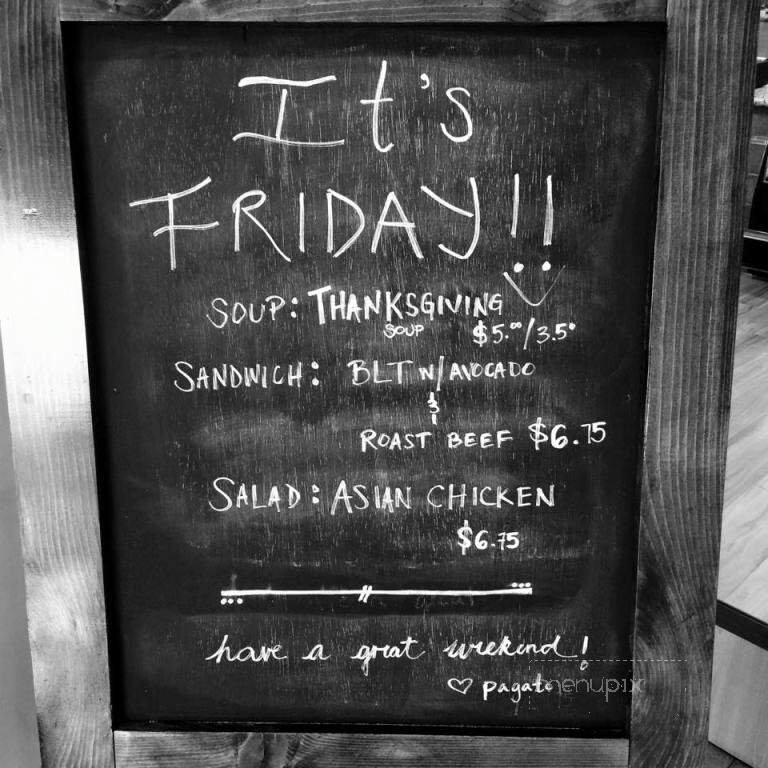 It's
FRIDAY!!
SOUP: THANKSGIVING
SOUP $5.00/3.50
SANDWICH: BLT W/AVOCADO
&
ROAST BEEF $6.75
SALAD: ASIAN CHICKEN
$6.75
have a great weekend!
♡ pagato
menupix